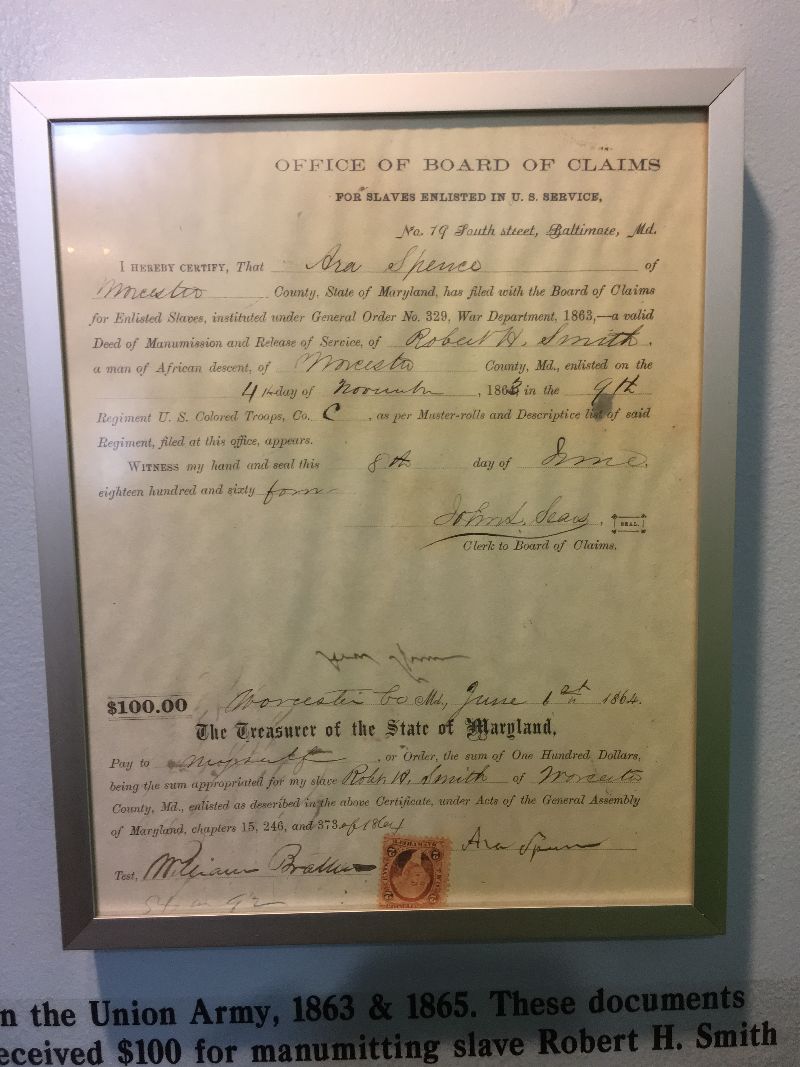 OFFICE OF BOARD OF CLAIMS
FOR SLAVES ENLISTED IN U. S. SERVICE,
No. 79 South street, Baltimore, Md.
I HEREBY CERTIFY, That Ara Spence of
Worcester County, State of Maryland, has filed with the Board of Claims
for Enlisted Slaves, instituted under General Order No. 329, War Department, 1863,—a valid
Deed of Manumission and Release of Service, of Robert H. Smith,
a man of African descent, of Worcester County, Md., enlisted on the
4th day of November, 1863 in the 9th
Regiment U. S. Colored Troops, Co. C, as per Muster-rolls and Descriptive list of said
Regiment, filed at this office, appears.
WITNESS my hand and seal this 8th day of June,
eighteen hundred and sixty four
John L. Sears, SEAL.
Clerk to Board of Claims.
$100.00 Worcester Co Md., June 1864.
The Treasurer of the State of Maryland,
Pay to myself, or Order, the sum of One Hundred Dollars,
being the sum appropriated for my slave Robt H. Smith of Worcester
County, Md., enlisted as described in the above Certificate, under Acts of the General Assembly
of Maryland, chapters 15, 246, and 373 of 1864
Ara Spence
Test, William
n the Union Army, 1863 & 1865. These documents
eceived $100 for manumitting slave Robert H. Smith